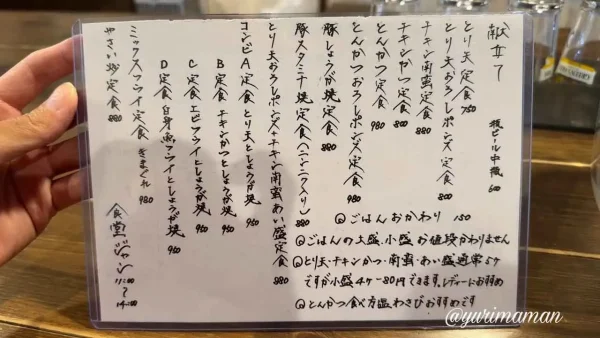 献立
瓶ビール中瓶 600
とり天定食 750
とり天おろしポンズ定食 800
チキン南蛮定食 880
チキンかつ定食 800
とんかつ定食 980
とんかつおろしポンズ定食 980
豚しょうが焼定食 880
豚スタミナ焼定食(ニンニク入り) 880
とり天おろしポンズ・チキン南蛮あい盛定食 980
コンビA定食 とり天としょうが焼 950
B定食 チキンかつとしょうが焼 950
C定食 エビフライとしょうが焼 950
D定食 白身魚フライとしょうが焼 950
ミックスフライ定食 きまぐれ 980
やさい炒定食 880
ごはんおかわり 150
ごはんの大盛、小盛お値段かわりません
とり天・チキンかつ・南蛮・あい盛通常5ケ
ですが小盛4ケ−80円できます。レディースお好め
とんかつ食べ方塩、わさびお好めです
食堂ジャン
11:00〜14:00
@yurimaman